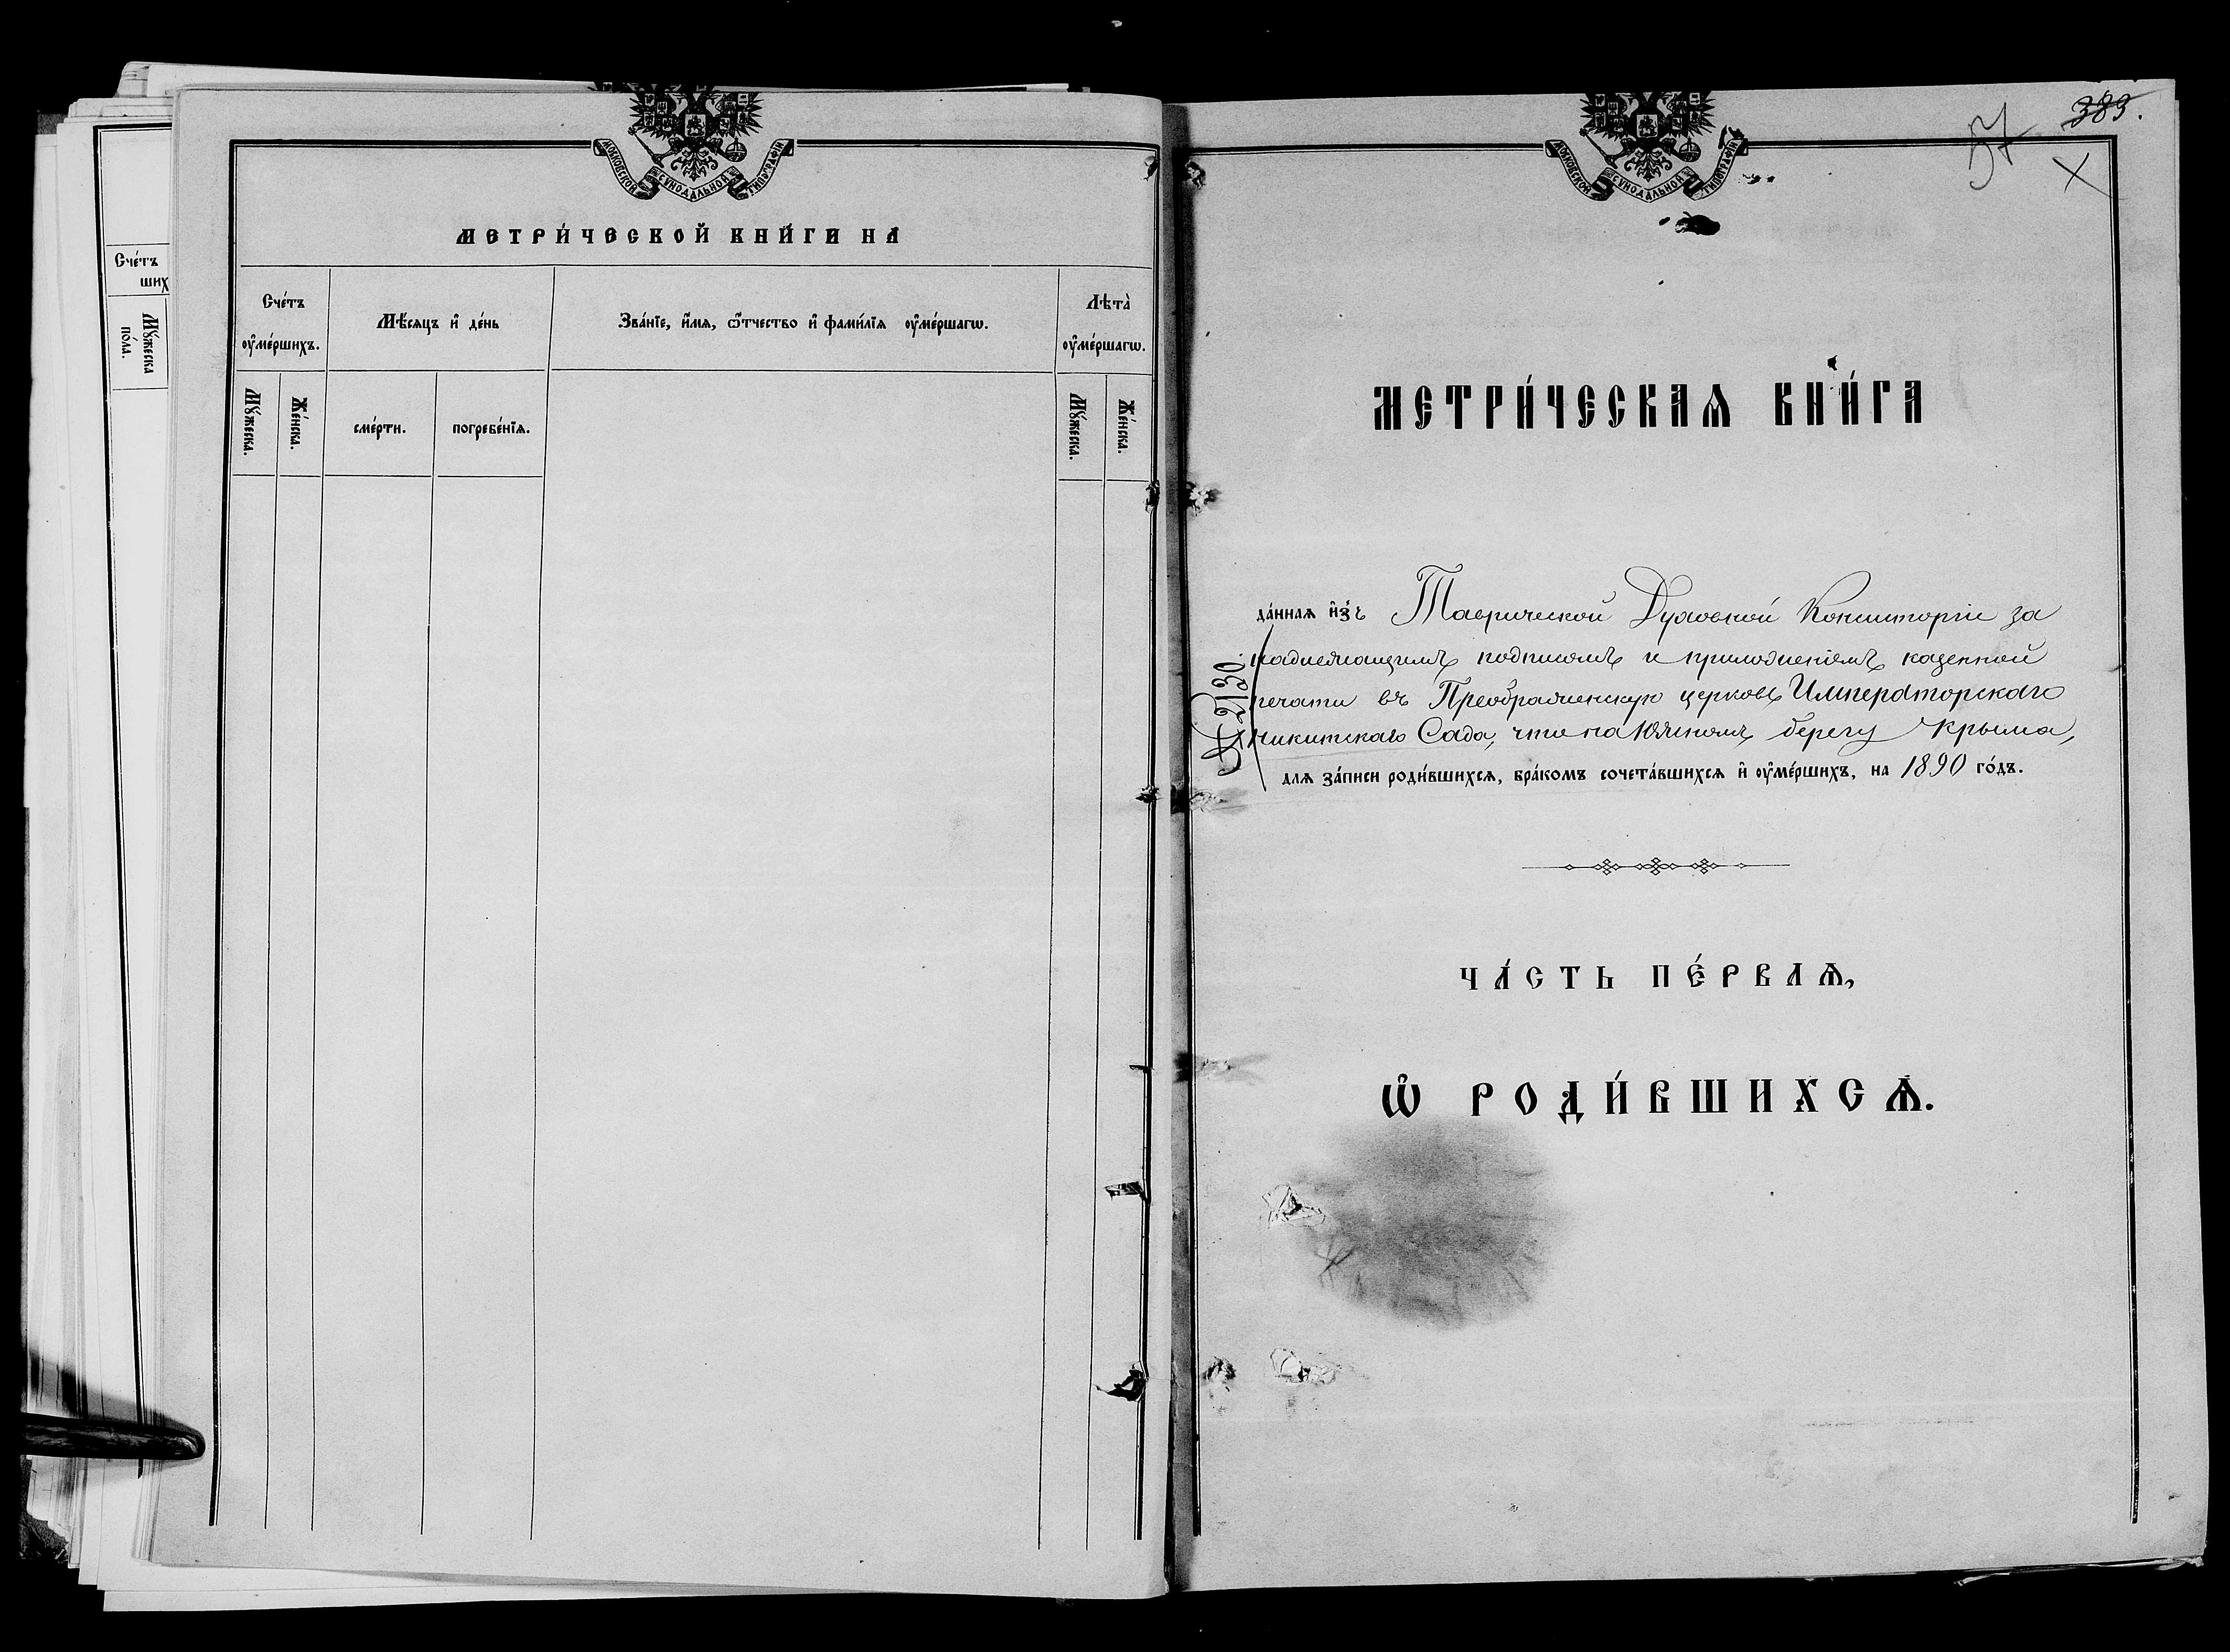 Сче́тъ
ших
Мꙋ́жеска
по́ла.
МОСКОВСКОЙ СѴНОДАЛЬНОЙ ТИПОГРАФІИ
МЕТРИ́ЧЕСКОЙ КНИ́ГИ НА
Сче́тъ ᲂу҆ме́ршихъ.
Мѣ́сяцъ и҆ де́нь
Зва́нїе, и҆́мѧ, ѻ҆́тчество и҆ фами́лїѧ ᲂу҆ме́ршагѡ.
Лѣта̀ ᲂу҆ме́ршагѡ.
Мꙋ́жеска.
Же́нска.
сме́рти.
погребе́нїѧ.
Мꙋ́жеска.
Же́нска.
383.
37
МОСКОВСКОЙ СѴНОДАЛЬНОЙ ТИПОГРАФІИ
МЕТРИ́ЧЕСКАѦ КНИ́ГА
да́ннаѧ и҆з̾ Таврической Духовной Консисторіи за
надлежащимъ подписомъ и приложеніемъ казенной
печати въ Преображенскую церковь Императорскаго
Никитскаго Сада, что на Южномъ берегу Крыма,
№ 2130.
длѧ за́писи роди́вшихсѧ, бра́комъ сочета́вшихсѧ и҆ ᲂу҆ме́ршихъ, на 1890 го́дъ.
ЧА́СТЬ ПЕ́РВАѦ,
Ѡ҆ РОДИ́ВШИХСѦ.